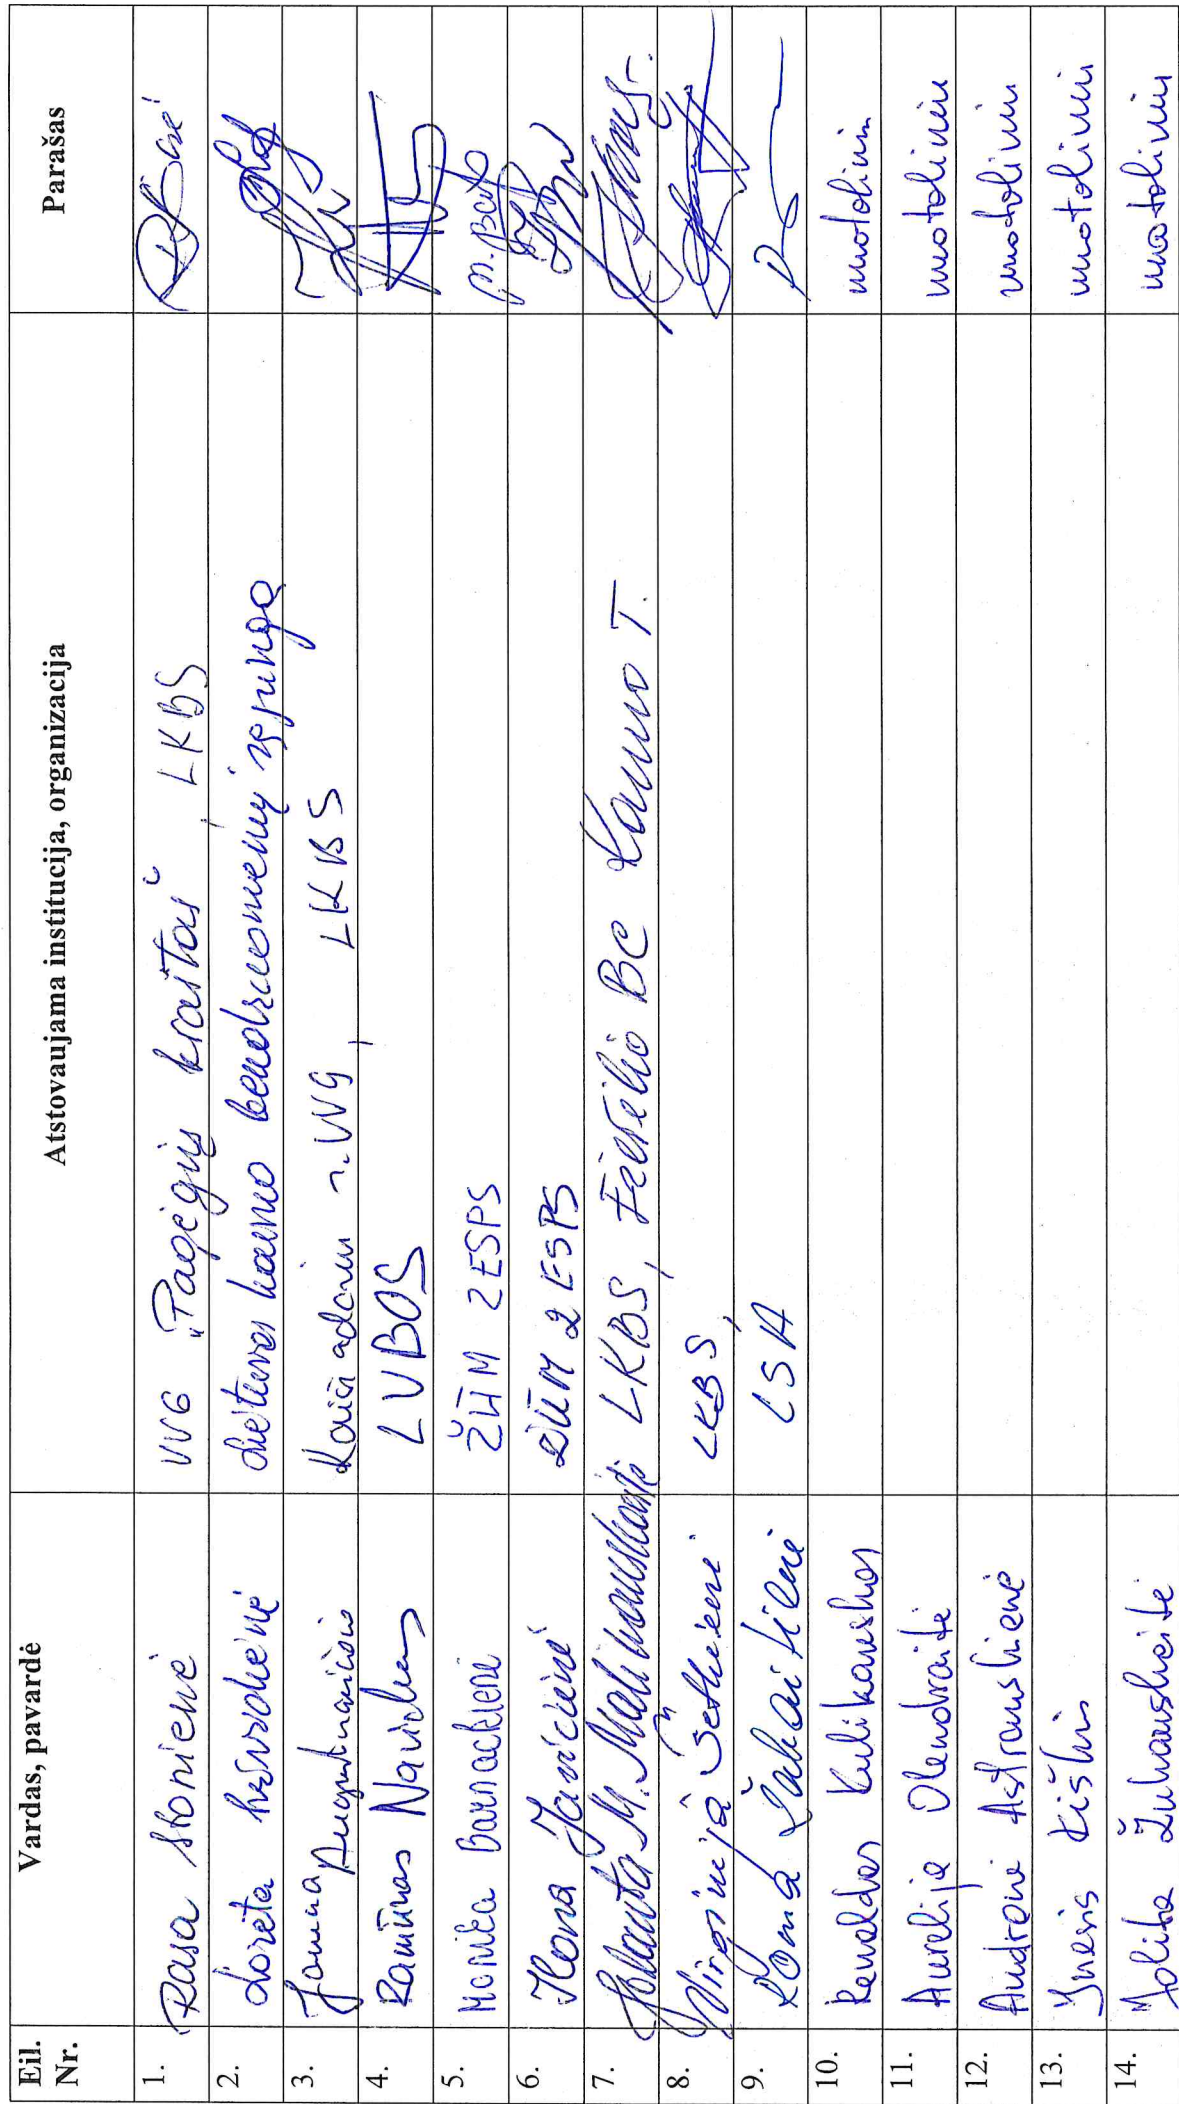 Eil. Nr. Vardas, pavardė Atstovaujama institucija, organizacija Parašas
1. Rasa Stonienė VVG "Pagėgių kraštas", LKBS
2. Loreta Lietuvos kaimo bendruomenių sąjunga
3. Janina Augustinavičienė r. VVG, LKBS
4. Ramūnas Navickas LVBOS
5. Monika Barnackienė ŽŪM 2 ESPS M. Bar
6. Ilona Javičienė ŽŪM 2 ESPS
7. Jolanta M. Malinauskaitė LKBS, BC Kauno T.
8. Virginija Šetkienė LKBS,
9. Roma Žakaitienė LSA
10. Renaldas Kulikauskas nuotoliniu
11. Aurelija Olendraitė nuotoliniu
12. Audronė Astrauskienė nuotoliniu
13. Inesis Kiškis nuotoliniu
14. Jolita Žukauskaitė nuotoliniu